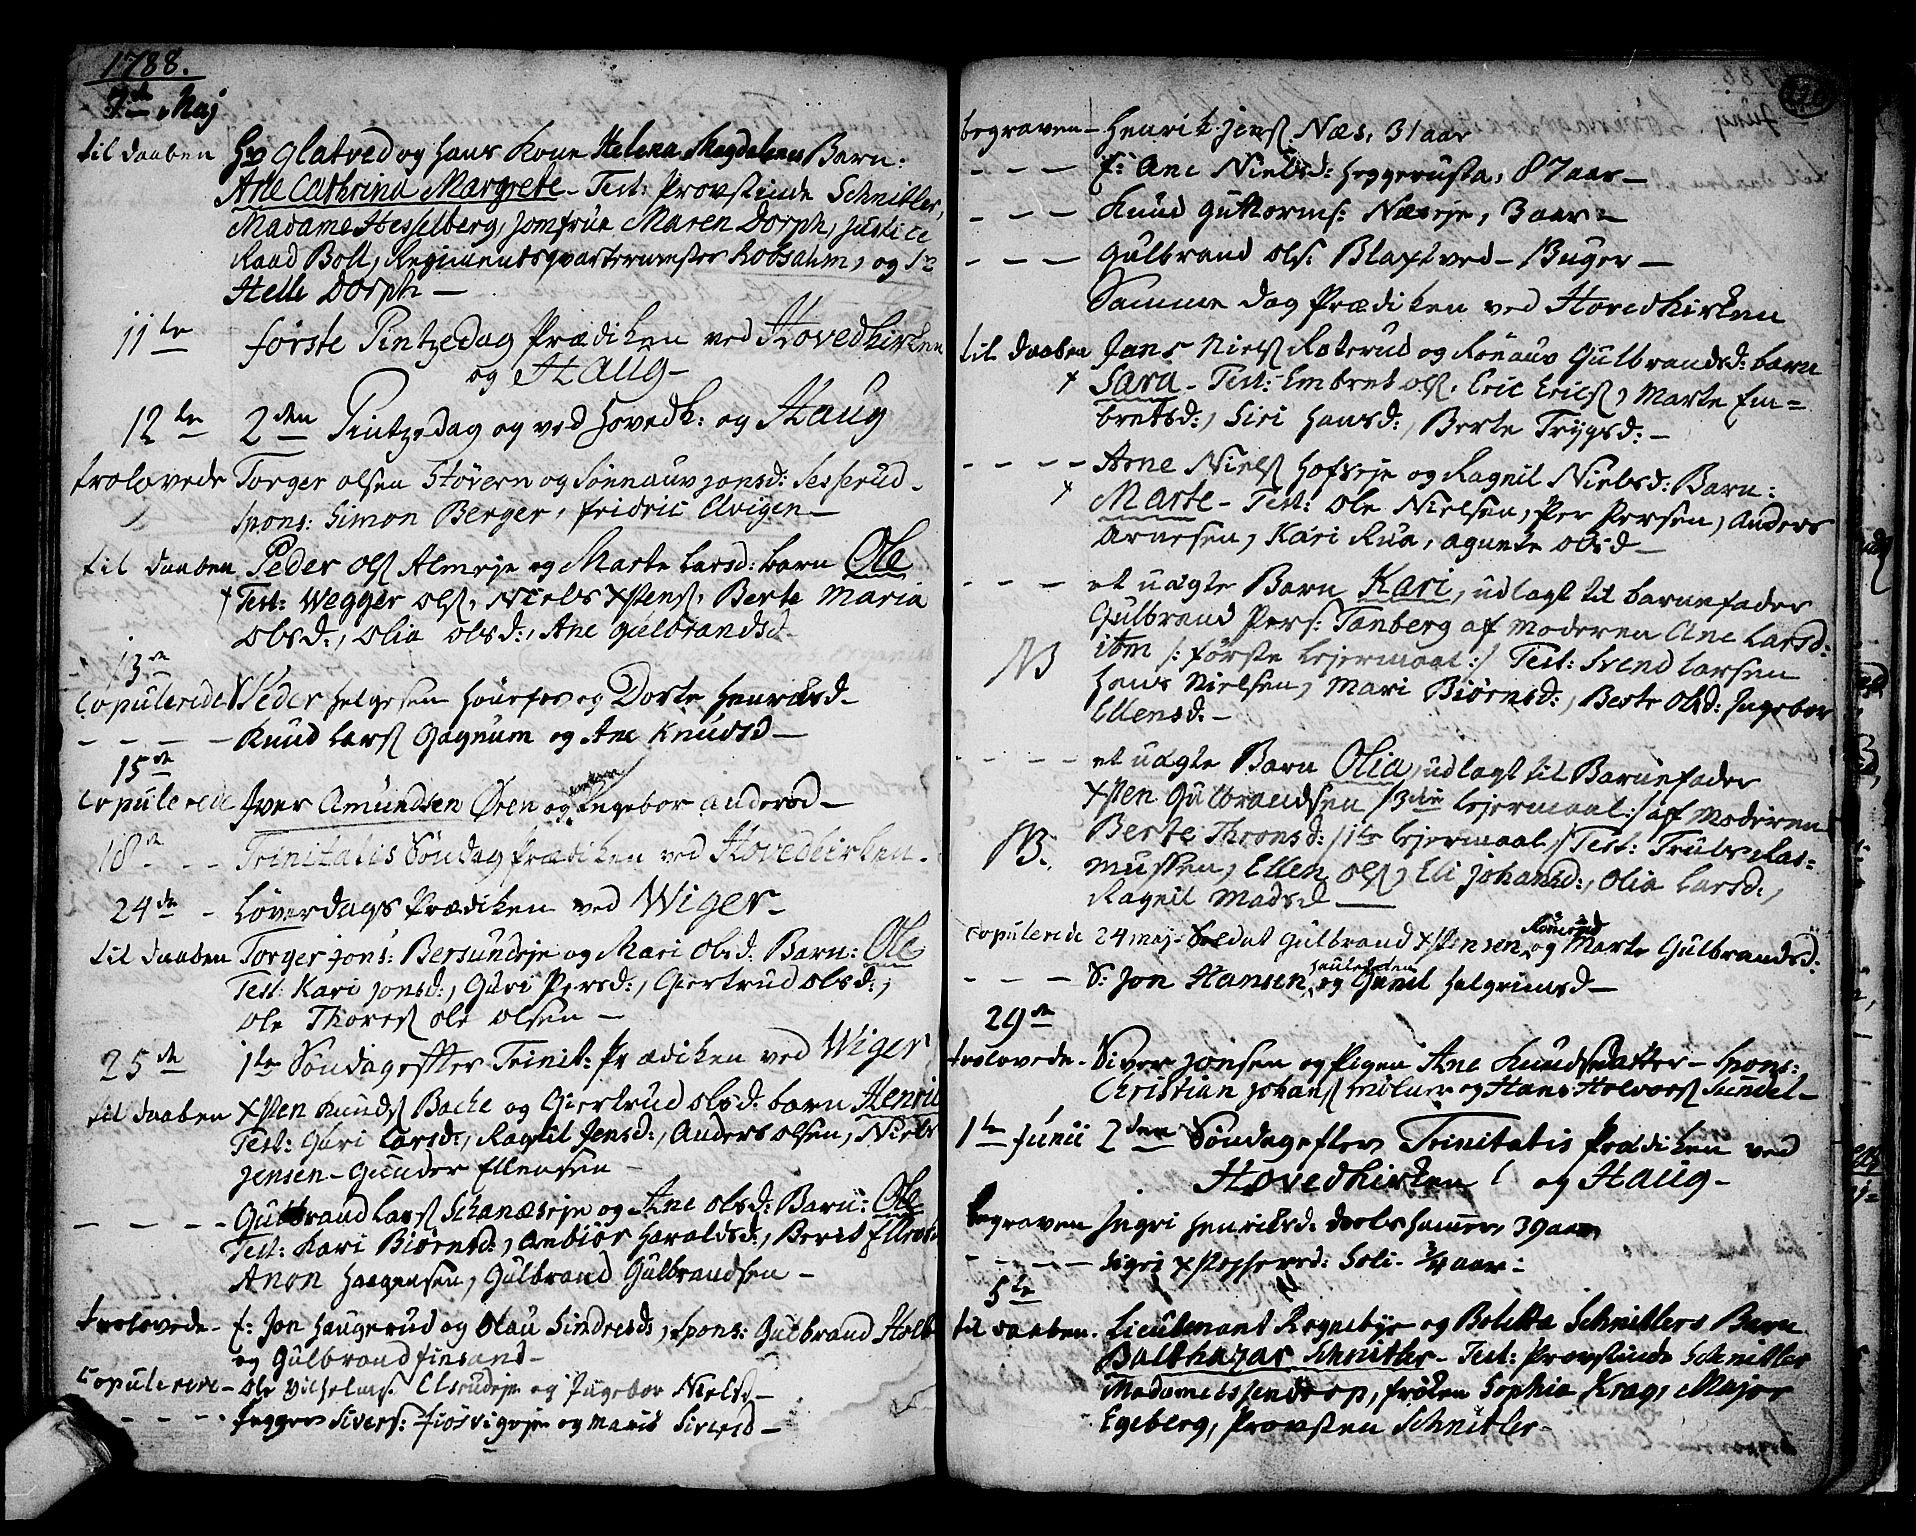 1788.
7de Maj
til daaben Hr Glatved og Hans Kone Helena Magdalenes Barn:
Ane Cathrina Margrete - Test: Provstinde Schnitler,
Madame Hesselberg, Jomfrue Maren Dorph, Justice
Raad Bolt, Regimentsqvartermester Robsahm, og Sr
Helle Dorph -
11te første Pintzedag Prædiken ved Hovedkirken
og Haug -
12te 2den Pintzedag og ved Hovedk: og Haug
trolovede Torger Olsen Støvern og Sønnauv Jonsd: Sesserud -
Spons: Simon Berger, Fridric Elvigen -
til daaben Peder Ols Almeje og Marte Larsd: barn Ole
Test: Wegger Ols, Niels Xstens, Berte Maria
Olsd:, Olia Olsd:, Ane Gulbrandsd -
13de
copulerede Peder Helgesen Hønefos og Dorte Henrichsd -
- - - - Knud Lars Gagnum og Ane Knudsd -
15de
copulerede Iver Amundsen Øren og Ingebor Andersd -
18de - - Trinitatis Søndag Prædiken ved Hovedkirken -
24de - Løverdags Prædiken ved Wiger -
til daaben Torger Jons: Bersundeje og Mari Olsd: Barn: Ole
Test: Kari Jonsd:, Guri Persd:, Giertrud Olsd:,
Ole Thores Ole Olsen -
25de 1te Søndag efter Trinit: Prædiken ved Wiger
til daaben Xsten Knuds Bache og Giertrud Olsd: barn Henric
Test: Guri Larsd:, Ragnil Jensd:, Anders Olsen, Niels
Jensen - Gunder Ellensen -
- - - - Gulbrand Lars Schanæseje og Ane Olsd: Barn: Ole
Test: Kari Biørnsd:, Anbiør Haraldsd:, Berit Ellensd
Anon Haagensen, Gulbrand Gulbrandsen -
trolovede - E: Jon Haugerud og Olau Sindresd, Spons: Gulbrand Hole
og Gulbrand Finsand -
copulerede - Ole Vilhelms: Elserudeje og Ingebor Nielsd -
- - - - Sivers: og Marie Siversd -
begraven - Henrik Jens Næs, 31 aar
- - - E: Ane Nielsd: Heggerusta, 87 aar -
- - - Knud Guttorms: Næseje, 3 aar -
- - - Gulbrand Ols: Blaxtved - Buger -
Samme dag Prædiken ved Hovedkirken
til daaben Jans Niels Raterud og Rønauv Gulbrandsd: barn
Sara - Test: Embret Ols, Eric Erics, Marte Em=
bretsd:, Siri Hansd:, Berte Trygsd: -
- - - - Arne Niels Hofseje og Ragnil Nielsd: Barn:
Marte - Test: Ole Nielsen, Per Persen, Anders
Arnesen, Kari Rua, Agnete Olsd -
- - - et uægte Barn Kari, udlagt til barnefader
Gulbrand Pers: Tanberg af Moderen Ane Larsd:
NB ibm /: første Lejermaal :/ Test: Svend Larsen
Hans Nielsen, Mari Biørnsd:, Berte Olsd: Ingebor
Ellensd: -
- - - - et uægte Barn Olia, udlagt til Barnefader
Xsten Gulbrandsen /3die Lejermaal:/ af Moderen
NB. Berte Thronsd: /1te Lejermaal / Test: Truls Ras=
mussen, Ellen Ols, Eli Johansd:, Olia Larsd:,
Ragnil Madsd -
copulerede 24 Maj - Soldat Gulbrand Xstensen og Marte Gulbrandsd:
- - - S: Jon Hansen og Gunil Helgrimsd -
29de
trolovede - Siver Jonsen og Pigen Ane Knudsdatter - Spons:
Christian Johans Mølner og Hans Halvors Sundel -
1te Junii 2den Søndag efter Trinitatis Prædiken ved
Hovedkirken og Haug -
begraven Ingri Henrichsd: 39 aar
- - - - Sigri Xstophersd: Soli - 3/4 aar -
5te
til daaben. Lieutenant Rognebye og Boletta Schnitlers Barn
Balthazar Schnitler - Test: Provstinde Schnitler
Madame Essendrop, frøken Sophia Krag, Major
Egeberg, Provsten Schnitler -